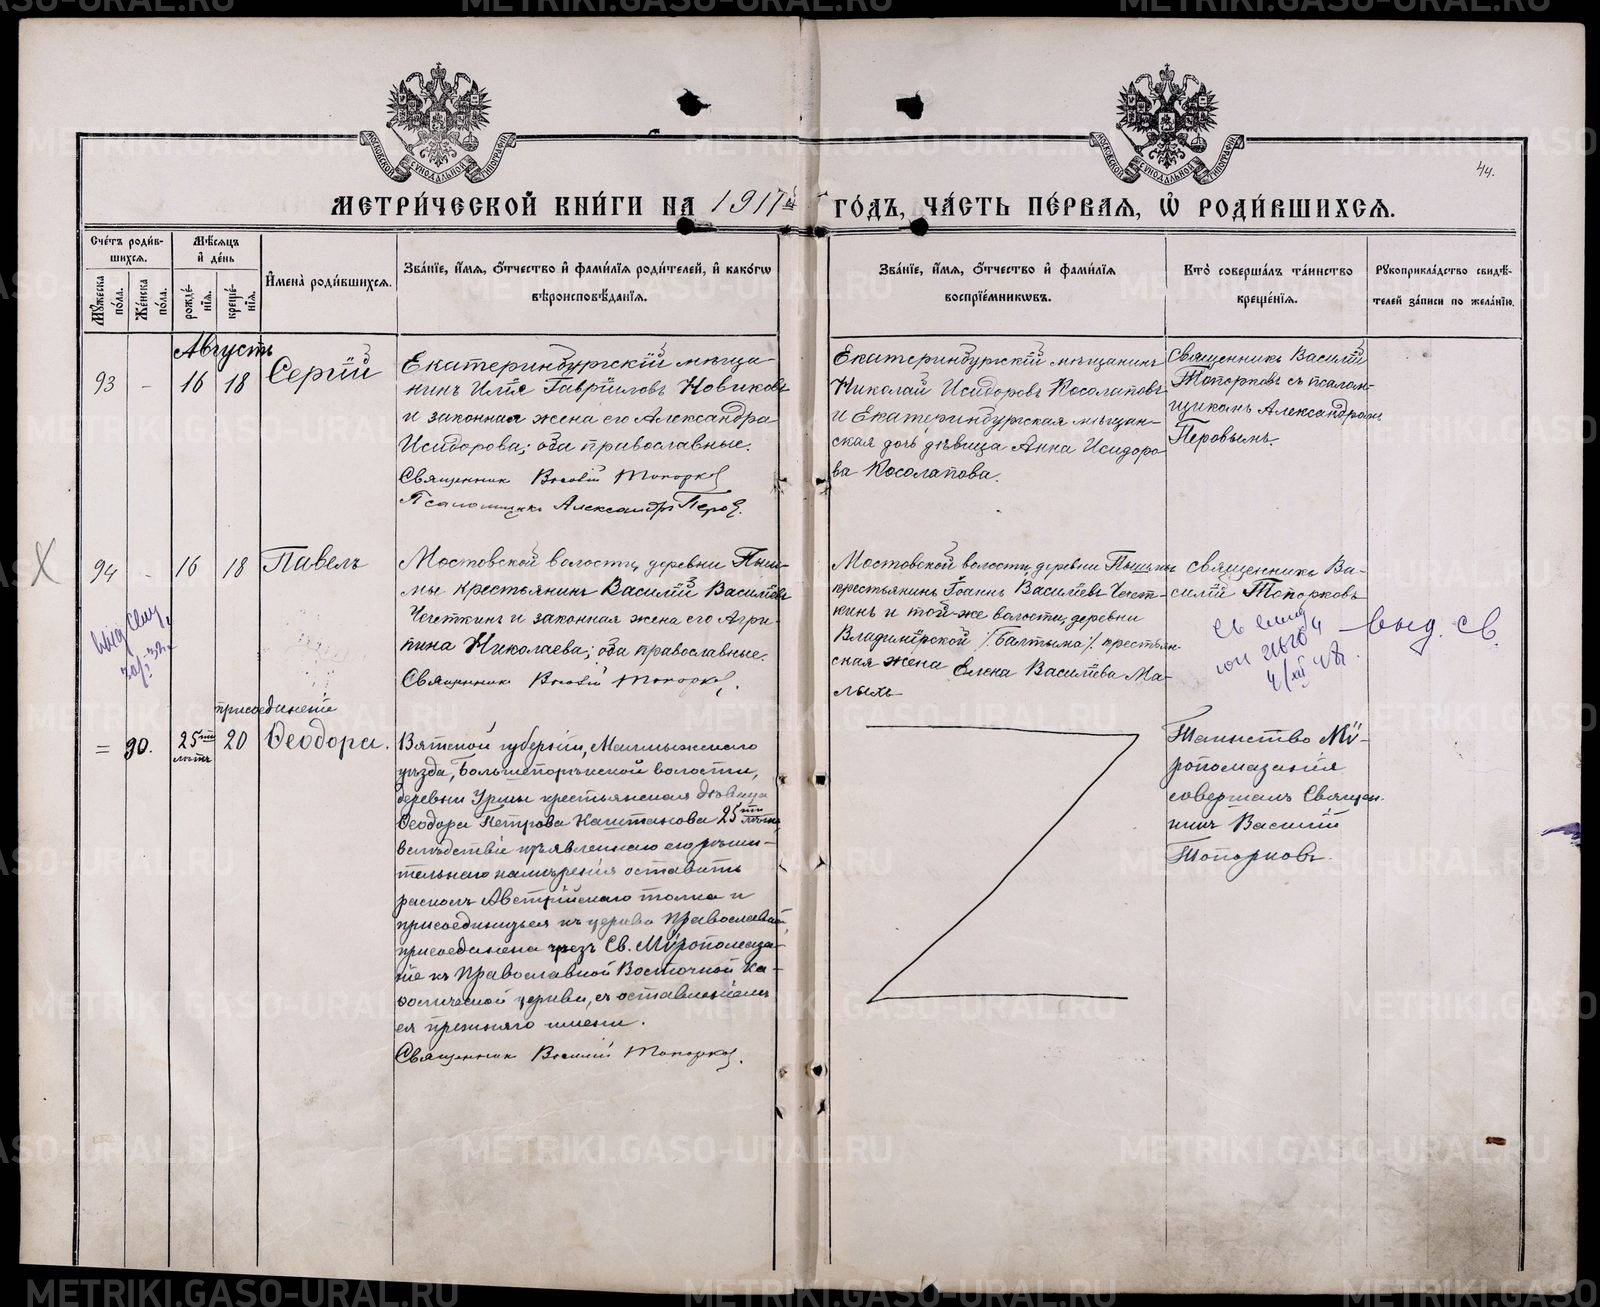 44.
МОСКОВСКОЙ СѴНОДАЛЬНОЙ ТИПОГРАФІИ
МОСКОВСКОЙ СѴНОДАЛЬНОЙ ТИПОГРАФІИ
МЕТРИ́ЧЕСКОЙ КНИ́ГИ НА 1917й ГО́ДЪ, ЧА́СТЬ ПЕ́РВАЯ, Ѡ҆ РОДИ́ВШИХСЯ.
Сче́тъ роди́в-
шихся.
Мꙋ́жеска по́ла.
Же́нска по́ла.
Мѣ́сяцъ
и҆ де́нь
рожде́нїя.
креще́нїя.
И҆мена̀ роди́вшихся.
Зва́нїе, и҆́мя, ѻ҆́тчество и҆ фами́лїя роди́телей, и҆ како́гѡ
вѣроисповѣ́данїя.
Зва́нїе, и҆́мя, ѻ҆́тчество и҆ фами́лїя
воспрїе́мникѡвъ.
Кто̀ соверша́лъ та́инство
креще́нїя.
Рꙋкоприкла́дство свидѣ́-
телей за́писи по жела́нїю.
Августъ
93 - 16 18 Сергій
Екатеринбургскій мѣща-
нинъ Илія Гавріиловъ Новиковъ
и законная жена его Александра
Исидорова; оба православные.
Священник Василій Топорков
Псаломщикъ Александръ Перов.
Екатеринбургскій мѣщанинъ
Николай Исидоровъ Косолаповъ
и Екатеринбургская мѣщан-
ская дочь дѣвица Анна Исидоро-
ва Косолапова.
Священникъ Василій
Топорковъ съ псалом-
щикомъ Александромъ
Перовымъ.
94 - 16 18 Павелъ
Мостовской волости, деревни Пыш-
мы крестьянинъ Василій Васильевъ
Чечеткинъ и законная жена его Агри-
пина Николаева; оба православные.
Священник Василій Топорков.
Мостовской волости, деревни Пышмы
крестьянинъ Іоаннъ Васильевъ Чечет-
кинъ и той-же волости, деревни
Владимірской /: Балтыма :/ крестьян-
ская жена Елена Васильева Ма-
лыхъ
Священникъ Ва-
силій Топорковъ
выд. св.
присоединеніе
= 90. 25ти лѣтъ 20 Ѳеодора.
Вятской губерніи, Малмыжскаго
уѣзда, Большепорѣкской волости,
деревни Урмы крестьянская дѣвица
Ѳеодора Петрова Каштанова 25ти лѣтъ,
вслѣдствіе изъявленнаго ею рѣши-
тельнаго намѣренія оставить
расколъ Австрійскаго толка и
присоединиться къ церкви Православной,
присоединена чрезъ Св. Мѵропомаза-
ніе къ Православной Восточной Ка-
ѳолической церкви, съ оставленіемъ
ея прежняго имени.
Священник Василій Топорков.
Таинство Мѵ-
ропомазанія
совершалъ Священ-
никъ Василій
Топорковъ.
METRIKI.GASO-URAL.RU